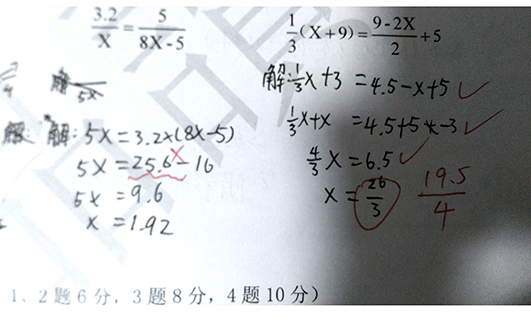 3.2/X = 5/(8X-5)
解:5X=3.2×(8X-5)
5X=25.6-16
5X=9.6
X=1.92
1/3(X+9)=(9-2X)/2+5
解:1/3X+3=4.5-X+5
1/3X+X=4.5+5-3
4/3X=6.5
X=26/3
19.5/4
1、2题6分，3题8分，4题10分）